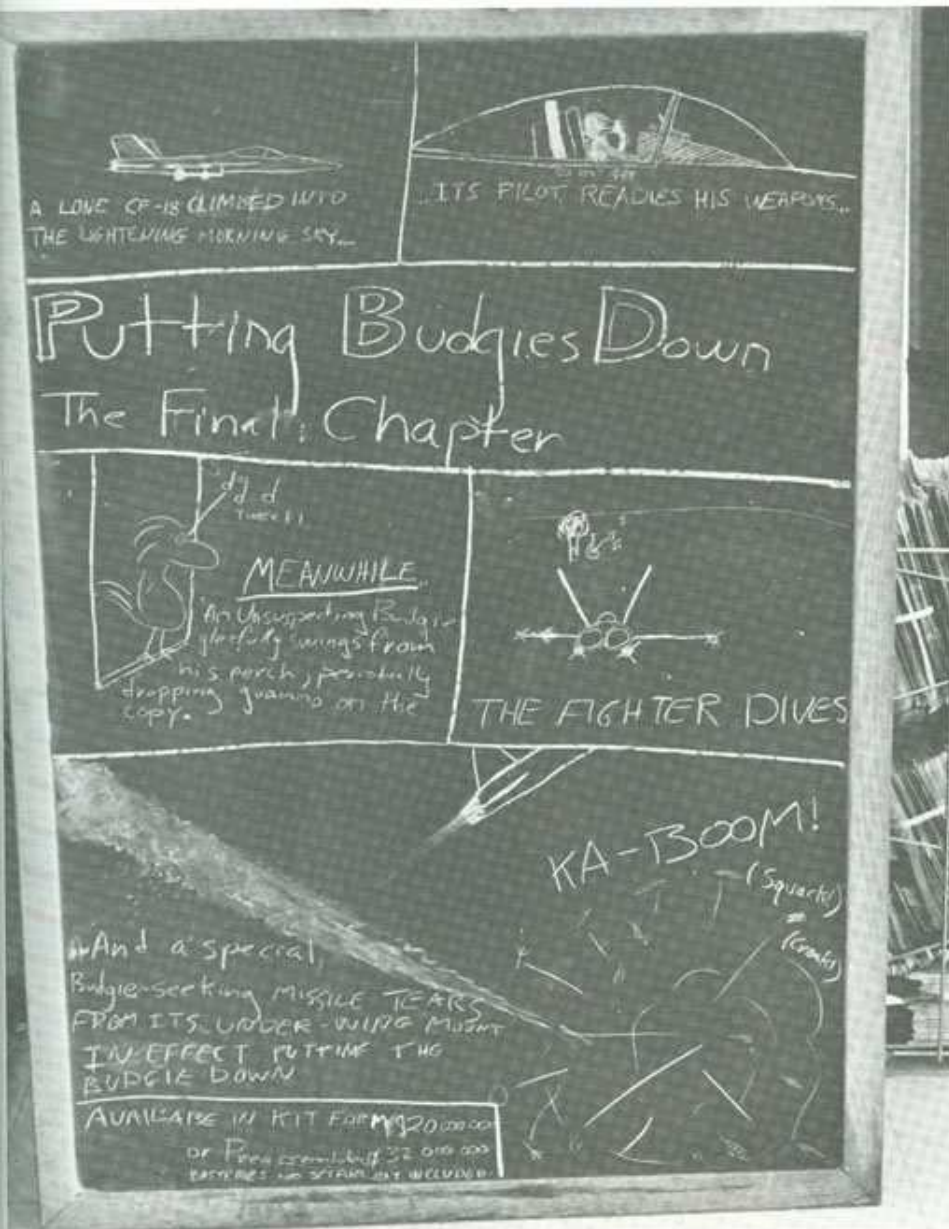 A LONE CF-18 CLIMBED INTO
THE LIGHTENING MORNING SKY...
...ITS PILOT READIES HIS WEAPONS...
Putting Budgies Down
The Final Chapter
MEANWHILE..
An Unsuspecting Budgie
gleefully swings from
his perch, periodically
dropping guanno on the
copy.
THE FIGHTER DIVES
KA-BOOM!
(Squack)
(Croak)
And a special
Budgie-seeking MISSILE TEARS
FROM ITS UNDER-WING MOUNT
IN EFFECT PUTTING THE
BUDGIE DOWN
AVAILABE IN KIT FORM $20 000 000
or $32 000 000
BATTERIES NOT INCLUDED